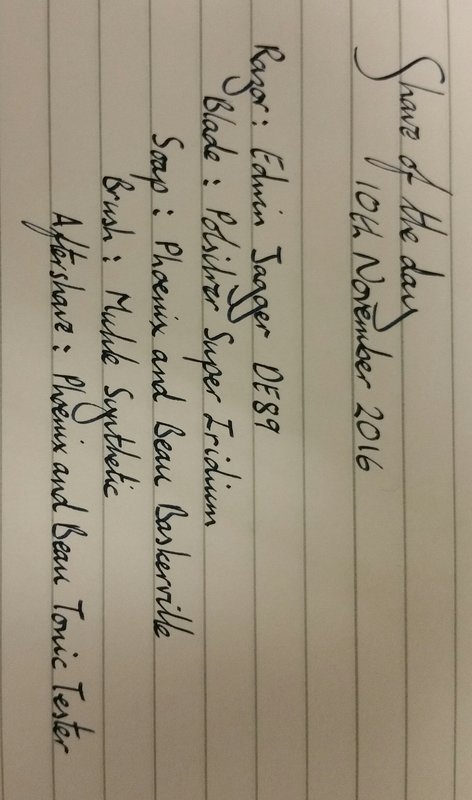 Shave of the day
10th November 2016
Razor: Edwin Jagger DE89
Blade: Polsilver Super Iridium
Soap: Phoenix and Beau Baskerville
Brush: Muhle Synthetic
Aftershave: Phoenix and Beau Tonic Tester